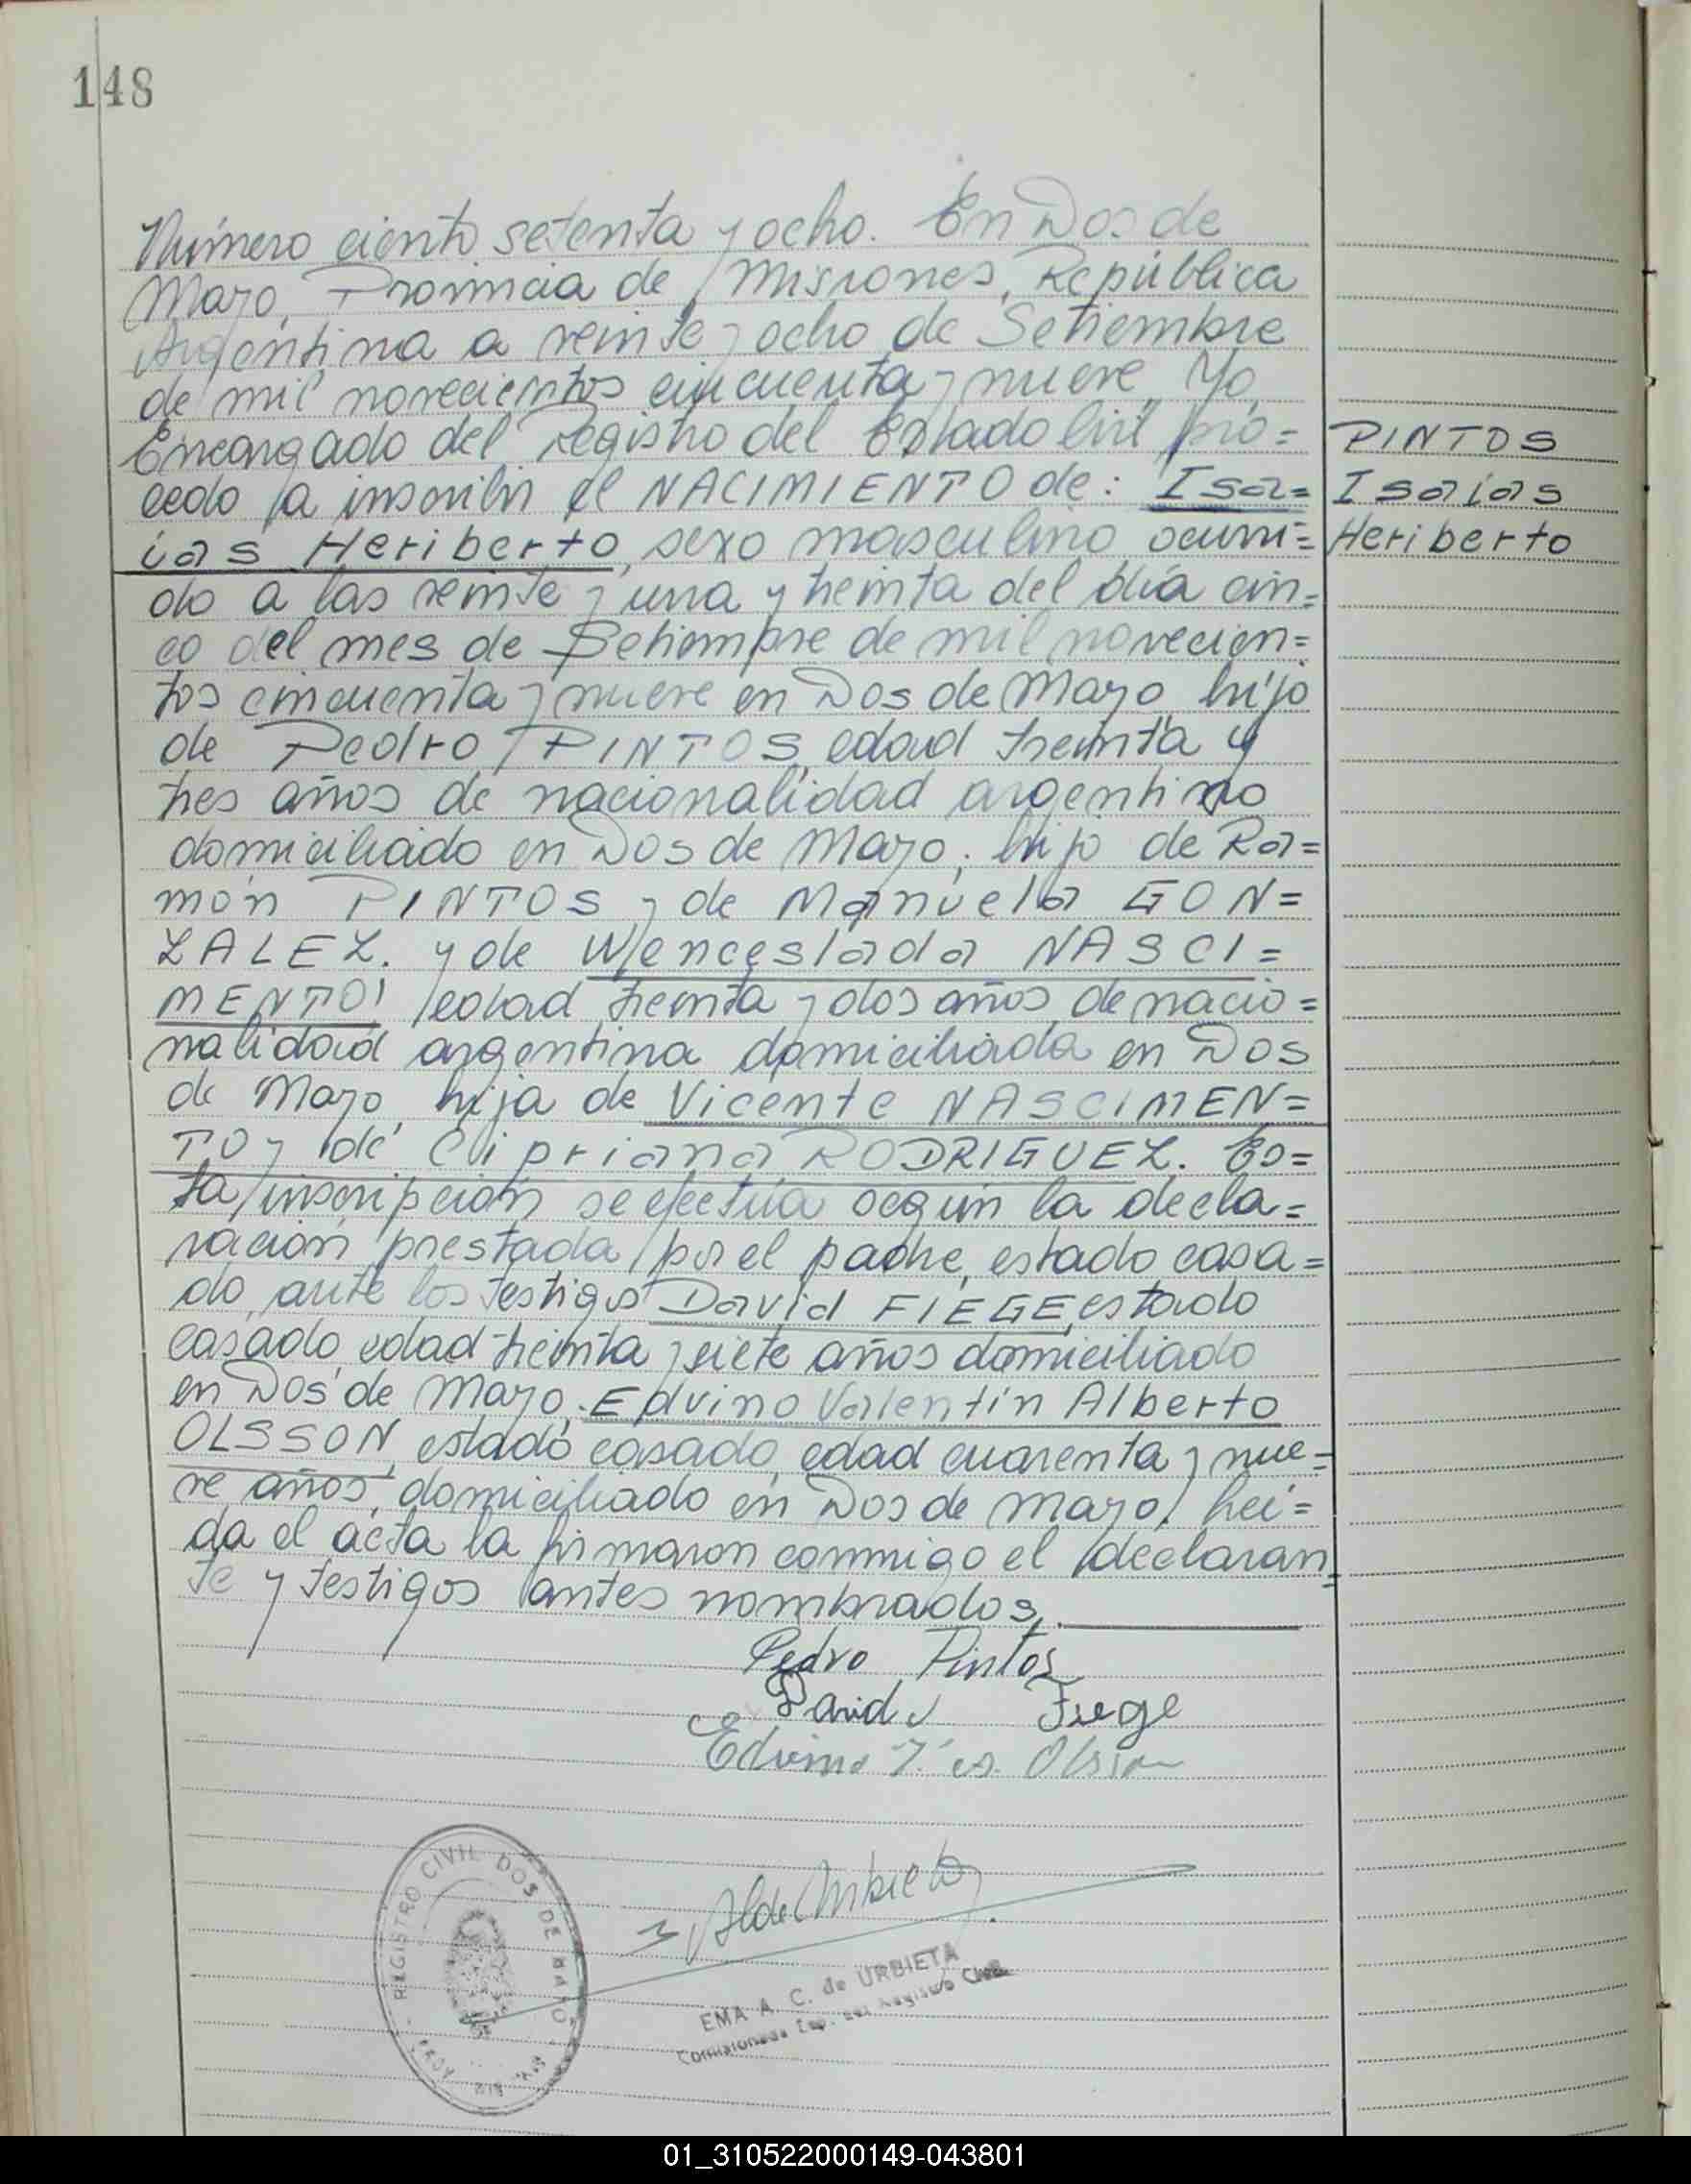 148
Número ciento setenta y ocho. En Dos de
Mayo, Provincia de Misiones, República
Argentina a veinte y ocho de Setiembre
de mil novecientos cincuenta y nueve, Yo,
Encargado del Registro del Estado Civil pro=
cedo a inscribir el NACIMIENTO de: Isa=
ías Heriberto, sexo masculino ocurri=
do a las veinte y una y treinta del día cin=
co del mes de Setiembre de mil novecien=
tos cincuenta y nueve en Dos de Mayo hijo
de Pedro PINTOS, edad treinta y
tres años de nacionalidad argentino
domiciliado en Dos de Mayo, hijo de Ra=
món PINTOS y de Manuela GON=
ZALEZ. y de Wenceslada NASCI=
MENTO, edad treinta y dos años de nacio=
nalidad argentina domiciliada en Dos
de Mayo, hija de Vicente NASCIMEN=
TO y de Cipriana RODRIGUEZ. Es=
ta inscripción se efectúa según la decla=
ración prestada por el padre, estado casa=
do, ante los testigos David FIEGE, estado
casado, edad treinta y siete años domiciliado
en Dos de Mayo, Edvino Valentín Alberto
OLSSON, estado casado, edad cuarenta y nue=
ve años, domiciliado en Dos de Mayo. Leí=
da el acta la firmaron conmigo el declaran=
te y testigos antes nombrados.
PINTOS
Isaías
Heriberto
Pedro Pintos
David Fiege
Edvino Olsson
REGISTRO CIVIL DOS DE MAYO
EMA A. C. de URBIETA
Registro Civil
01_310522000149-043801